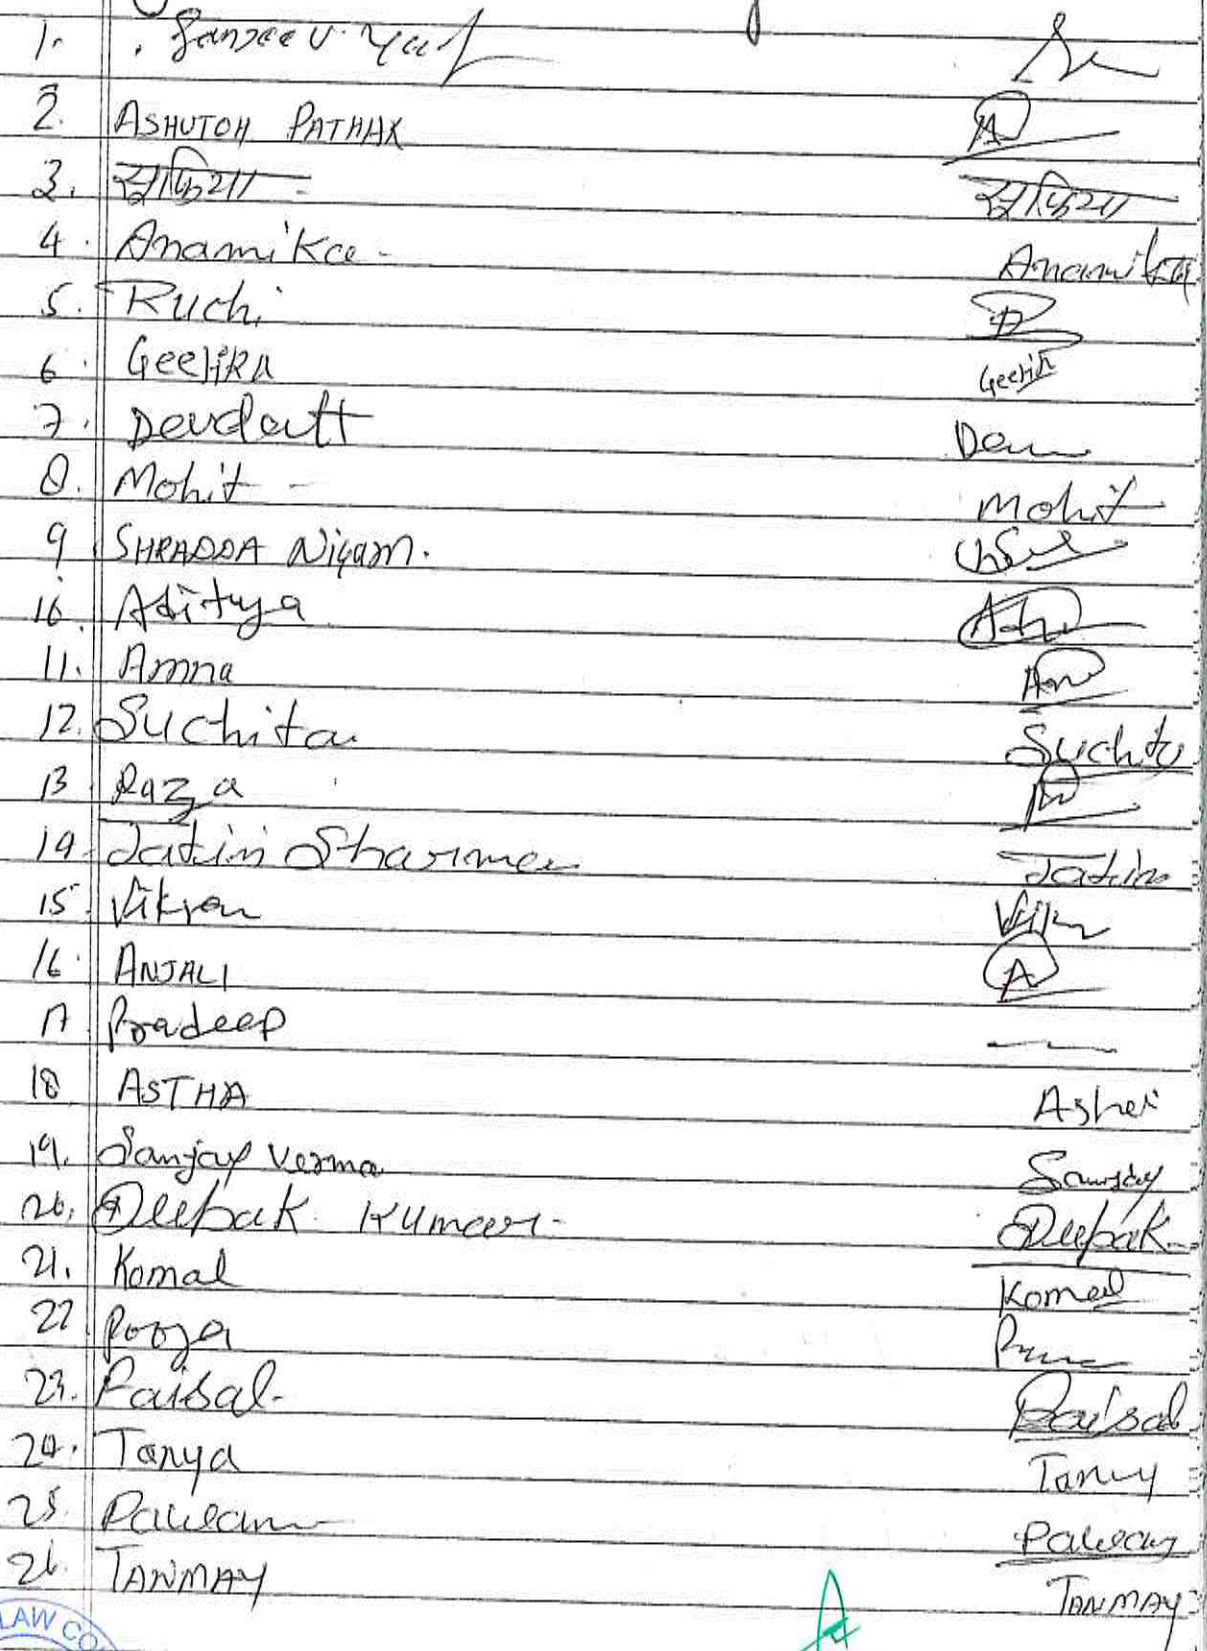 1. Sanjeev
2. ASHUTOH PATHAK A
3. सूफिया सूफिया
4. Anamika Anamika
5. Ruchi
6. Geetika Geetik
7. Devdatt Dev
8. Mohit Mohit
9 SHRADDA Nigam.
10. Aditya
11. Amna Am
12. Suchita Suchita
13 Raza
14 Jatin Sharma Jatin
15 Vikran
16. ANJALI A
17 Pradeep
18 ASTHA
19. Sanjay Verma Sanjay
20. Deepak Kumar Deepak
21. Komal Komal
22 Pooja
23. Faisal Faisal
24. Tanya Tany
25. Pawan Pawan
26. TANMAY TANMAY
LAW CO